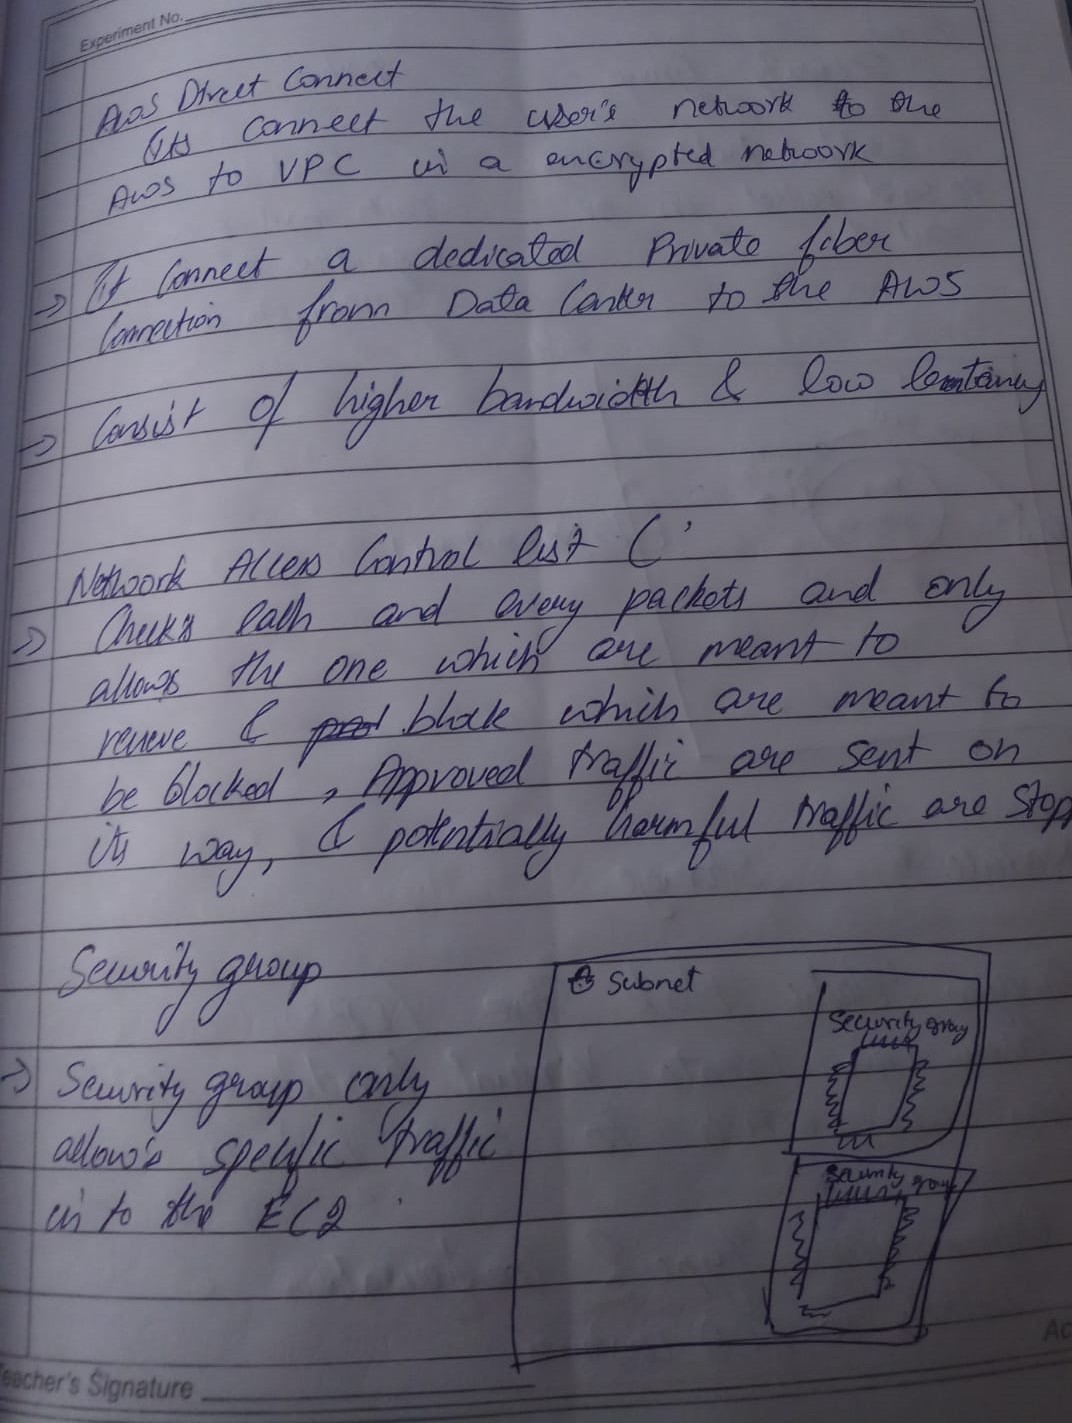 Experiment No.
Aws Direct Connect
Its connect the user's network to the
Aws to VPC in a encrypted network
→ It Connect a dedicated Private fiber
Connection from Data Center to the AWS
→ Consist of higher bandwidth & low
Network Access Control list (
→ Check's each and every packets and only
allows the one which are meant to
& block which are meant to
be blocked, Approved traffic are sent on
its way, & potentially harmful traffic are Stop
Security group
→ Security group only
allow's specific traffic
in to the EC2
Subnet
Security group
Security group
Teacher's Signature